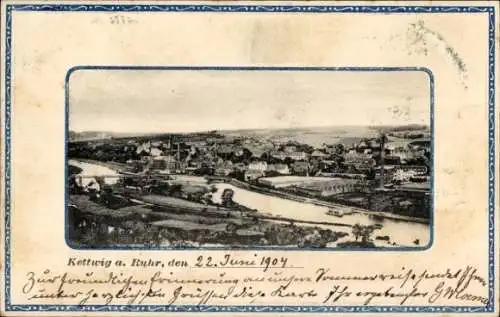 Kettwig a. Ruhr, den 22. Juni 1904
Zur freundlichen Erinnerung an unsere Sommerreise sendet Ihnen
unter herzlichen Grüssen diese Karte Ihr ergebenster G.